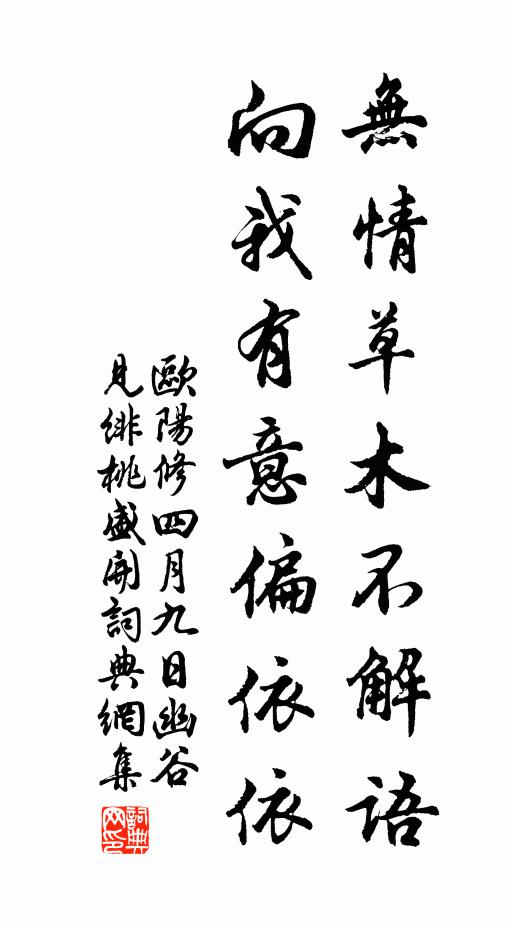 無情草木不解語
向我有意偏依依
歐陽修四月九日幽谷
見緋桃盛開詞典網集
詞典
网印